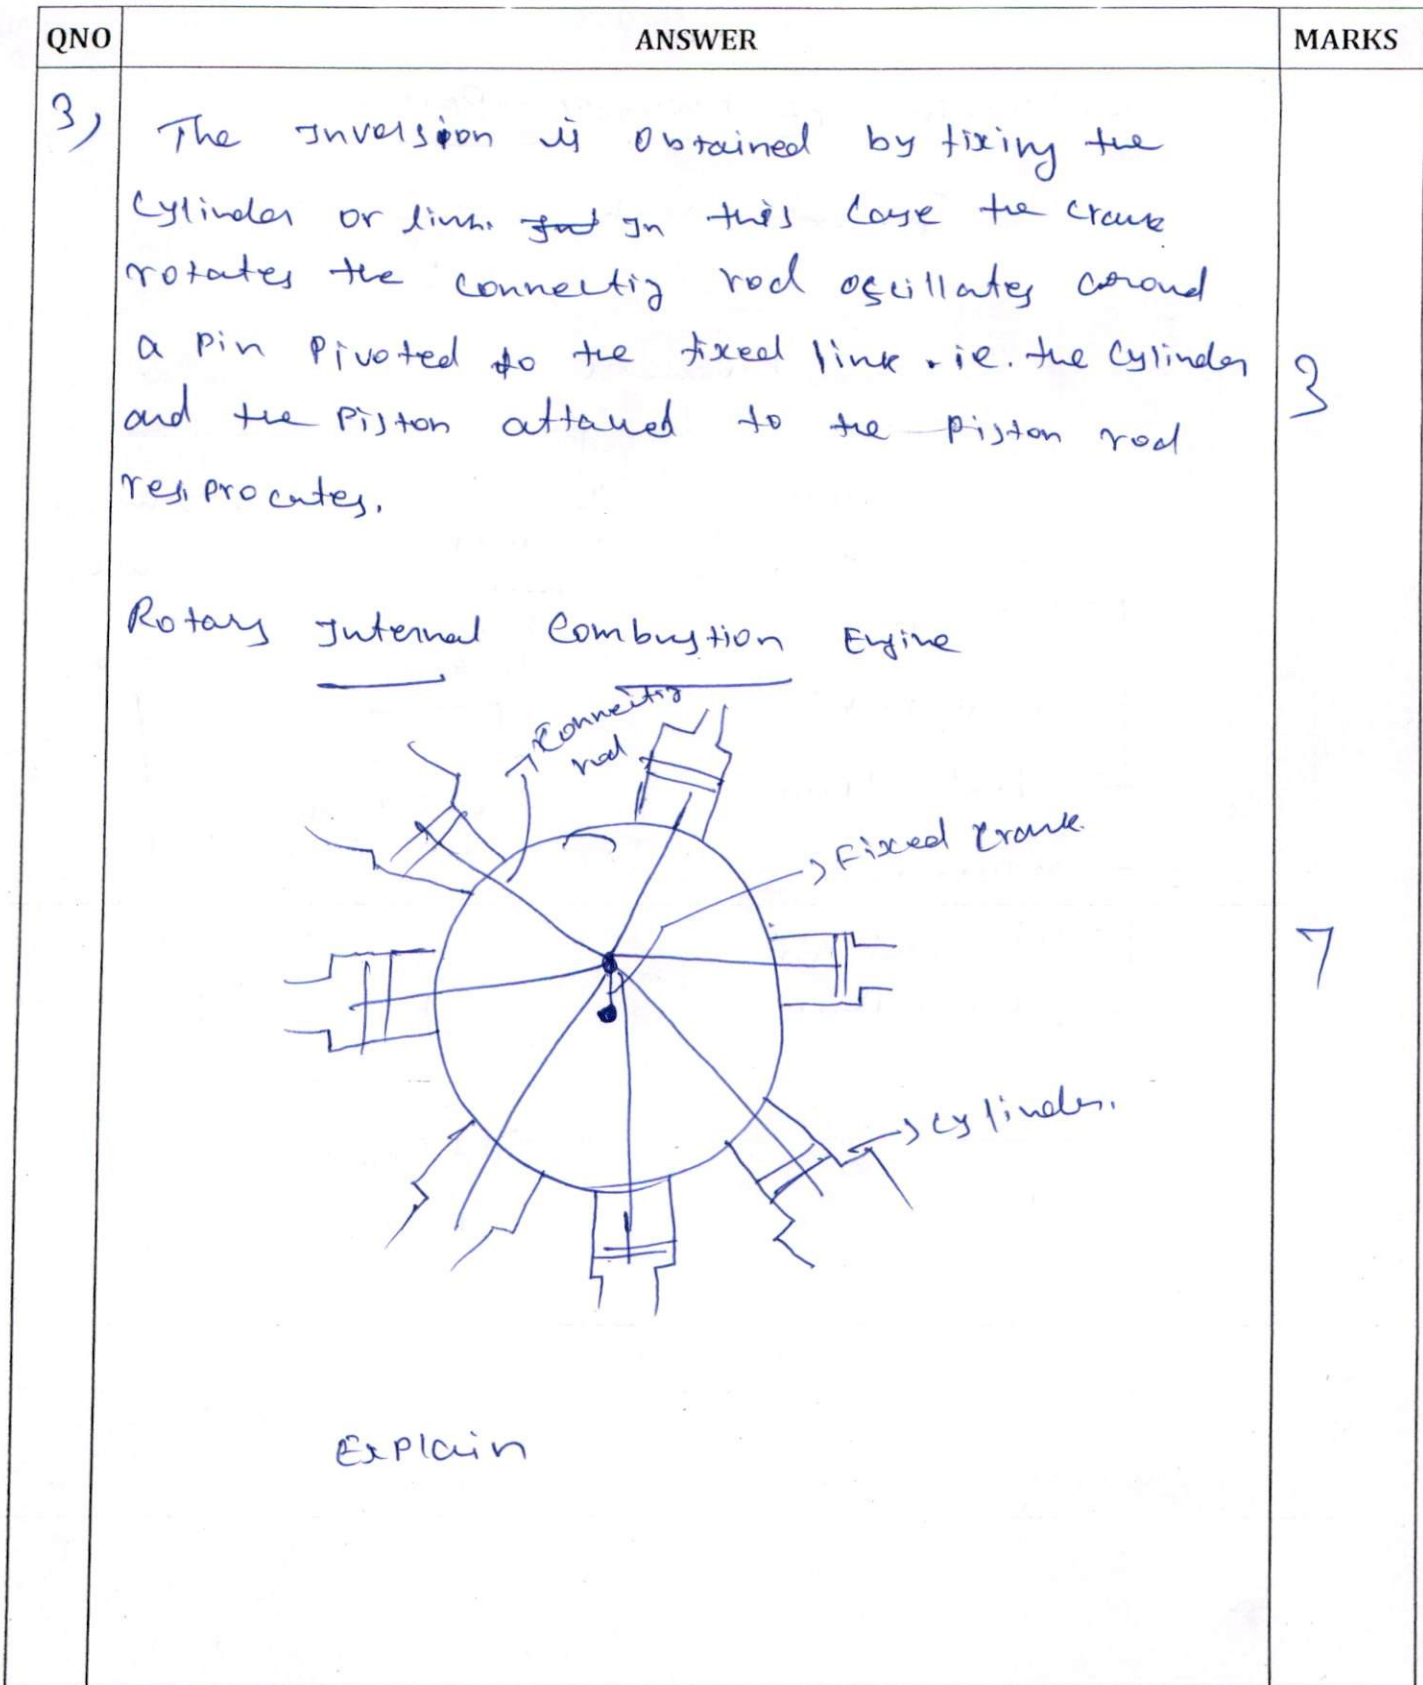 QNO ANSWER MARKS
3) The Inversion is obtained by fixing the
Cylinder or link. In this case the crank
rotates the connectig rod oscillates around
a pin pivoted to the fixed link . ie. the cylinder
3
and the piston attaued to the piston rod
resiprocates.
Rotary Internal Combustion Engine
Connectig
rod
Fixed crank.
7
cylinder.
Explain